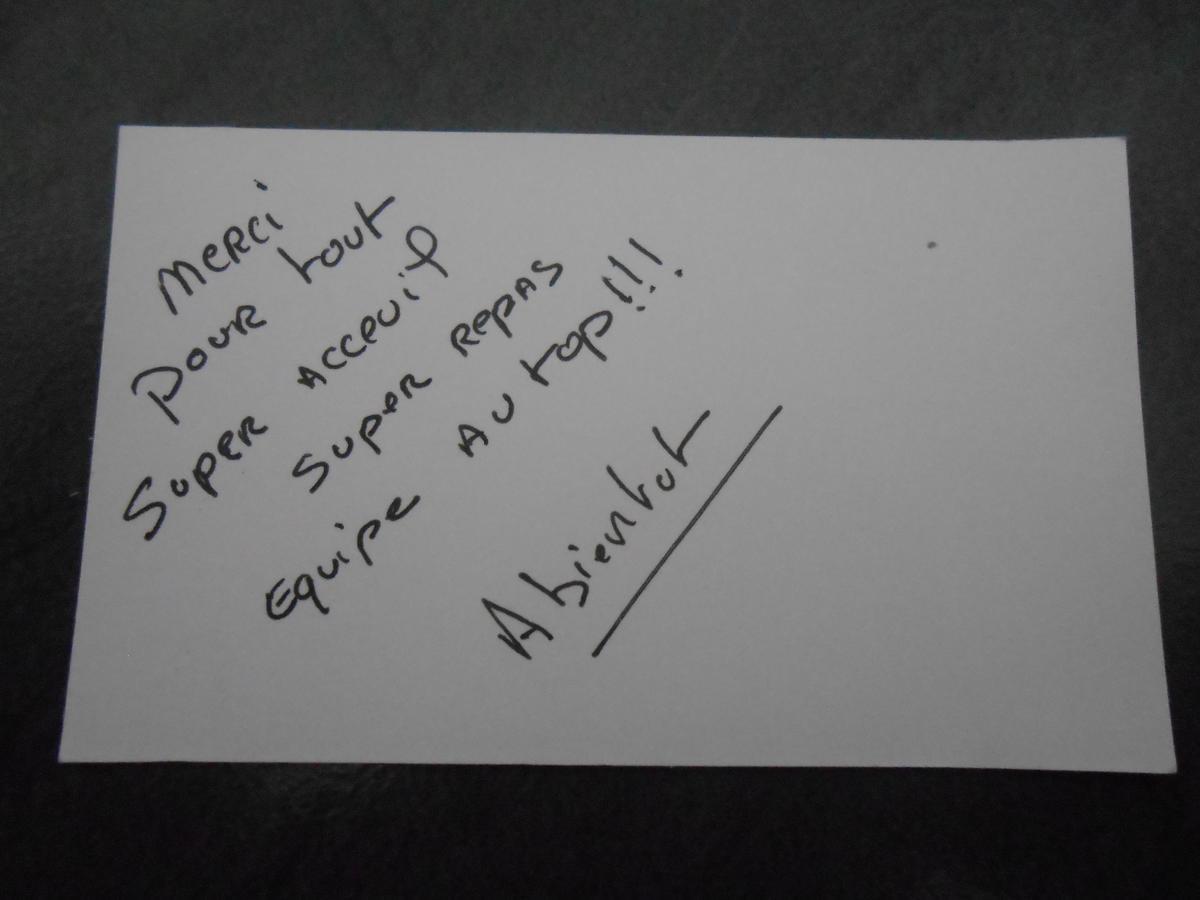 Merci
pour tout
Super acceuil
super repas
Equipe au top!!!
Abientot